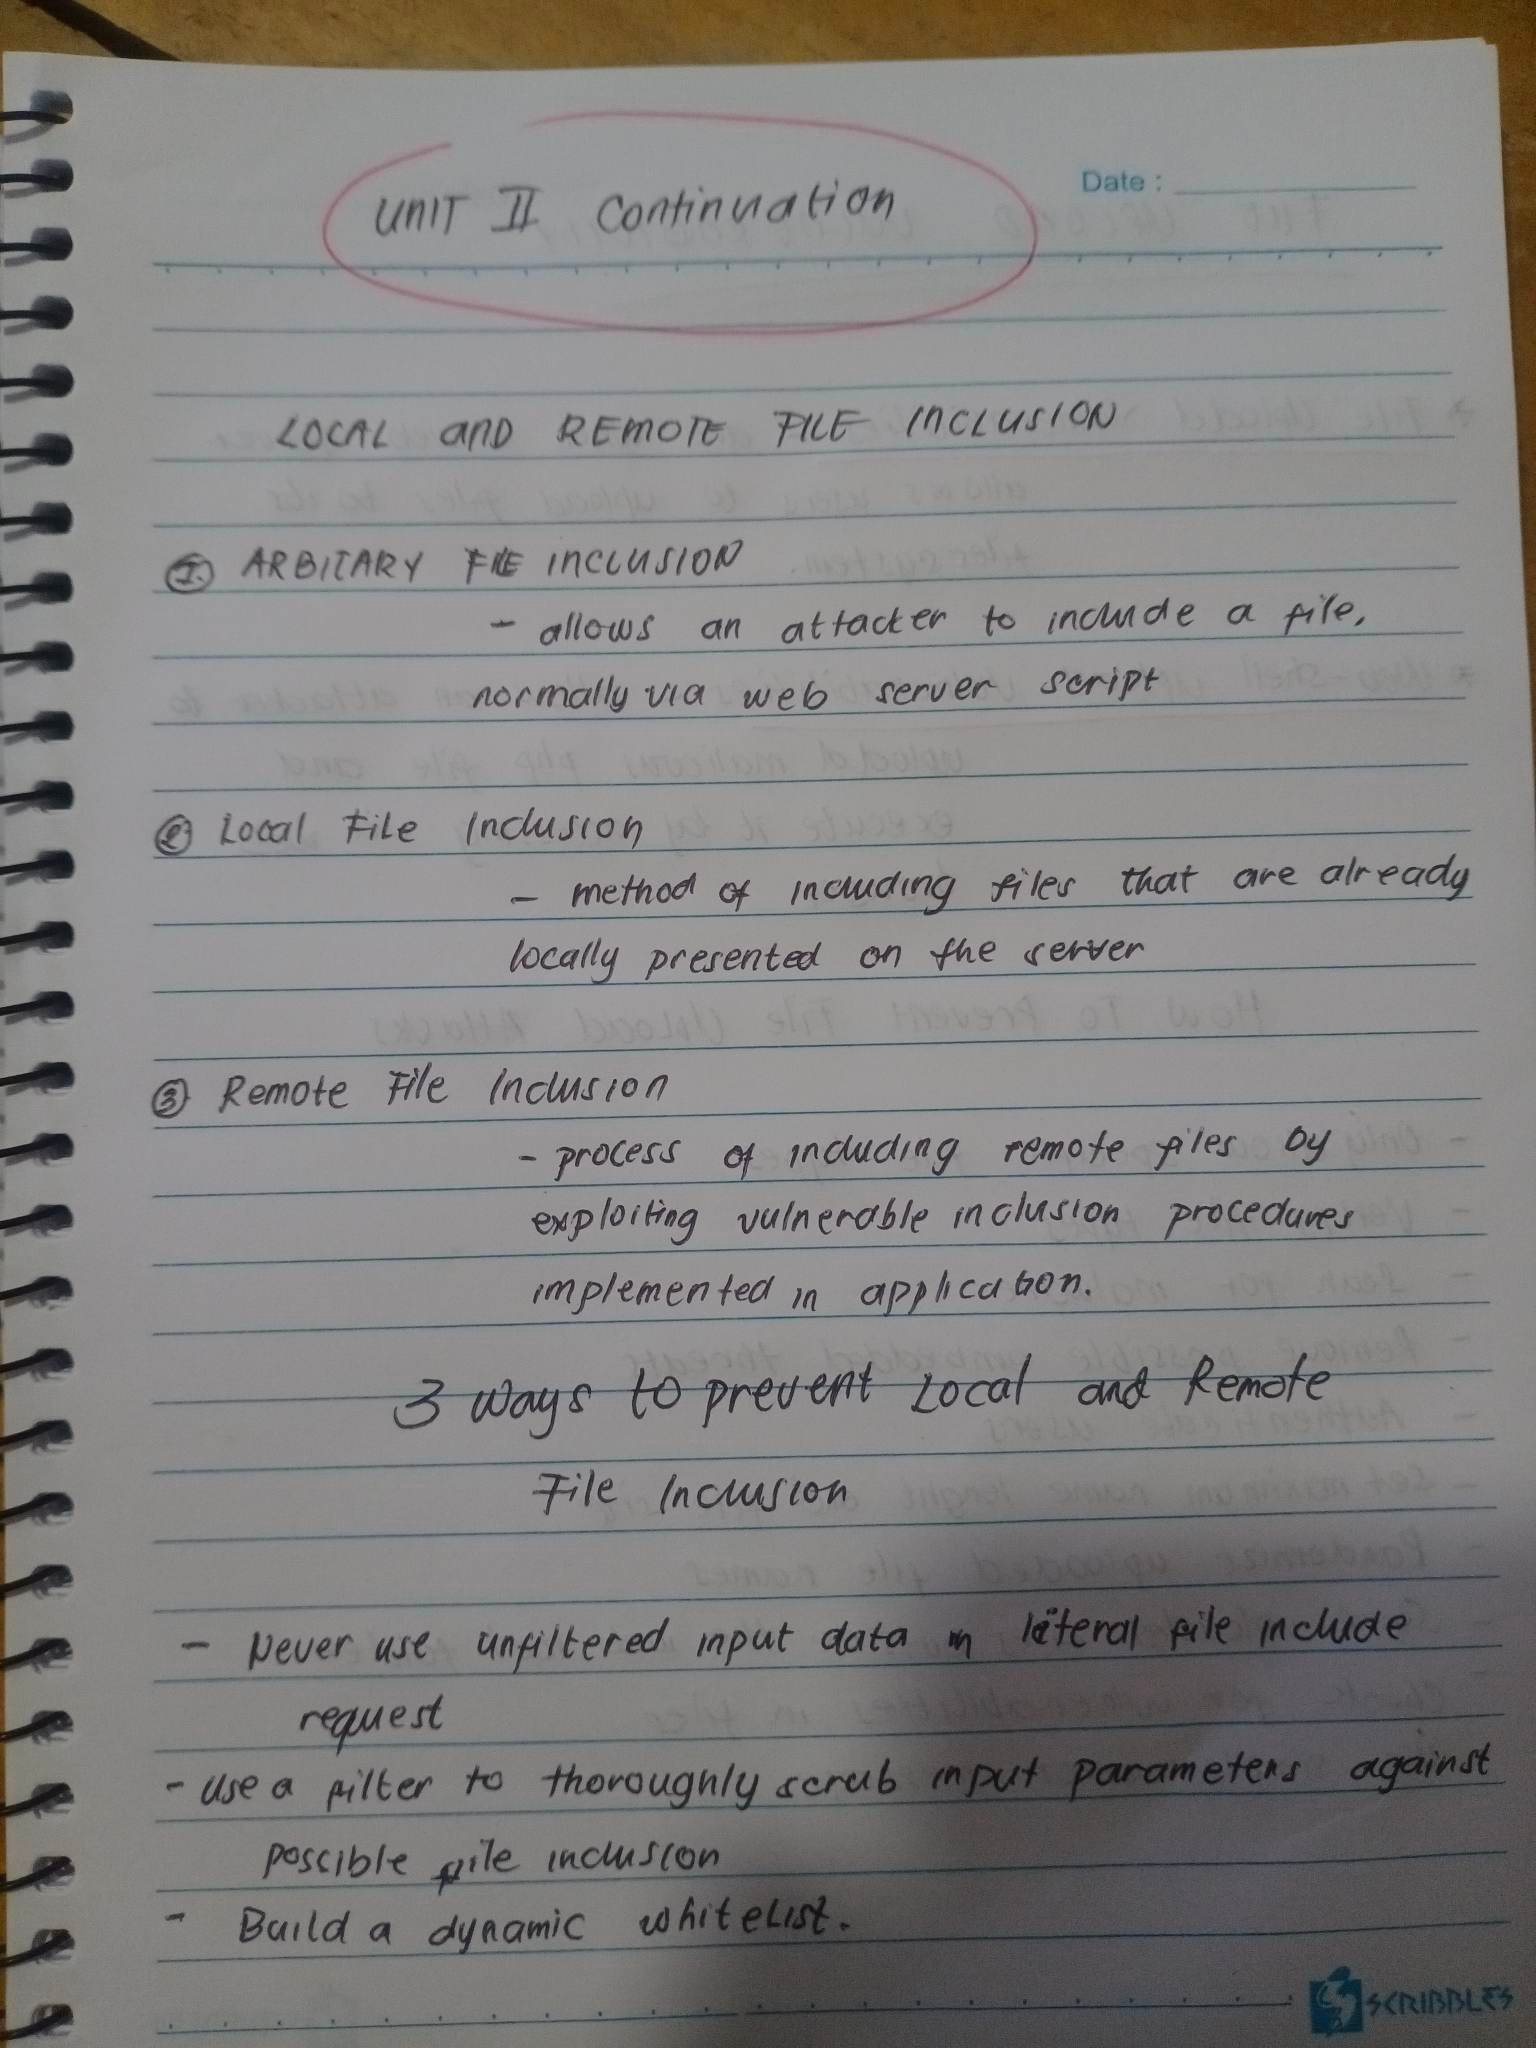 UNIT II Continuation
Date :
LOCAL and REMOTE FILE INCLUSION
1. ARBITARY FILE INCLUSION
- allows an attacker to include a file,
normally via web server script
2 Local File Inclusion
- method of including files that are already
locally presented on the server
3 Remote File Inclusion
- process of including remote files by
exploiting vulnerable inclusion procedures
implemented in application.
3 ways to prevent Local and Remote
File Inclusion
- Never use unfiltered input data in literal file include
request
- Use a filter to thoroughly scrub input parameters against
possible file inclusion
- Build a dynamic whitelist.
SCRIBBLES